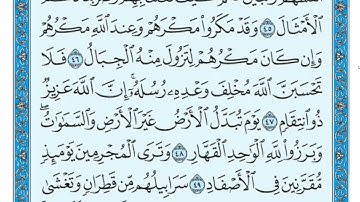 ٱلْأَمْثَالَ ۝٤٥ وَقَدْ مَكَرُوا۟ مَكْرَهُمْ وَعِندَ ٱللَّهِ مَكْرُهُمْ
وَإِن كَانَ مَكْرُهُمْ لِتَزُولَ مِنْهُ ٱلْجِبَالُ ۝٤٦ فَلَا
تَحْسَبَنَّ ٱللَّهَ مُخْلِفَ وَعْدِهِۦ رُسُلَهُۥٓ ۗ إِنَّ ٱللَّهَ عَزِيزٌ
ذُو ٱنتِقَامٍ ۝٤٧ يَوْمَ تُبَدَّلُ ٱلْأَرْضُ غَيْرَ ٱلْأَرْضِ وَٱلسَّمَٰوَٰتُ ۖ
وَبَرَزُوا۟ لِلَّهِ ٱلْوَٰحِدِ ٱلْقَهَّارِ ۝٤٨ وَتَرَى ٱلْمُجْرِمِينَ يَوْمَئِذٍ
مُّقَرَّنِينَ فِى ٱلْأَصْفَادِ ۝٤٩ سَرَابِيلُهُم مِّن قَطِرَانٍ وَتَغْشَىٰ